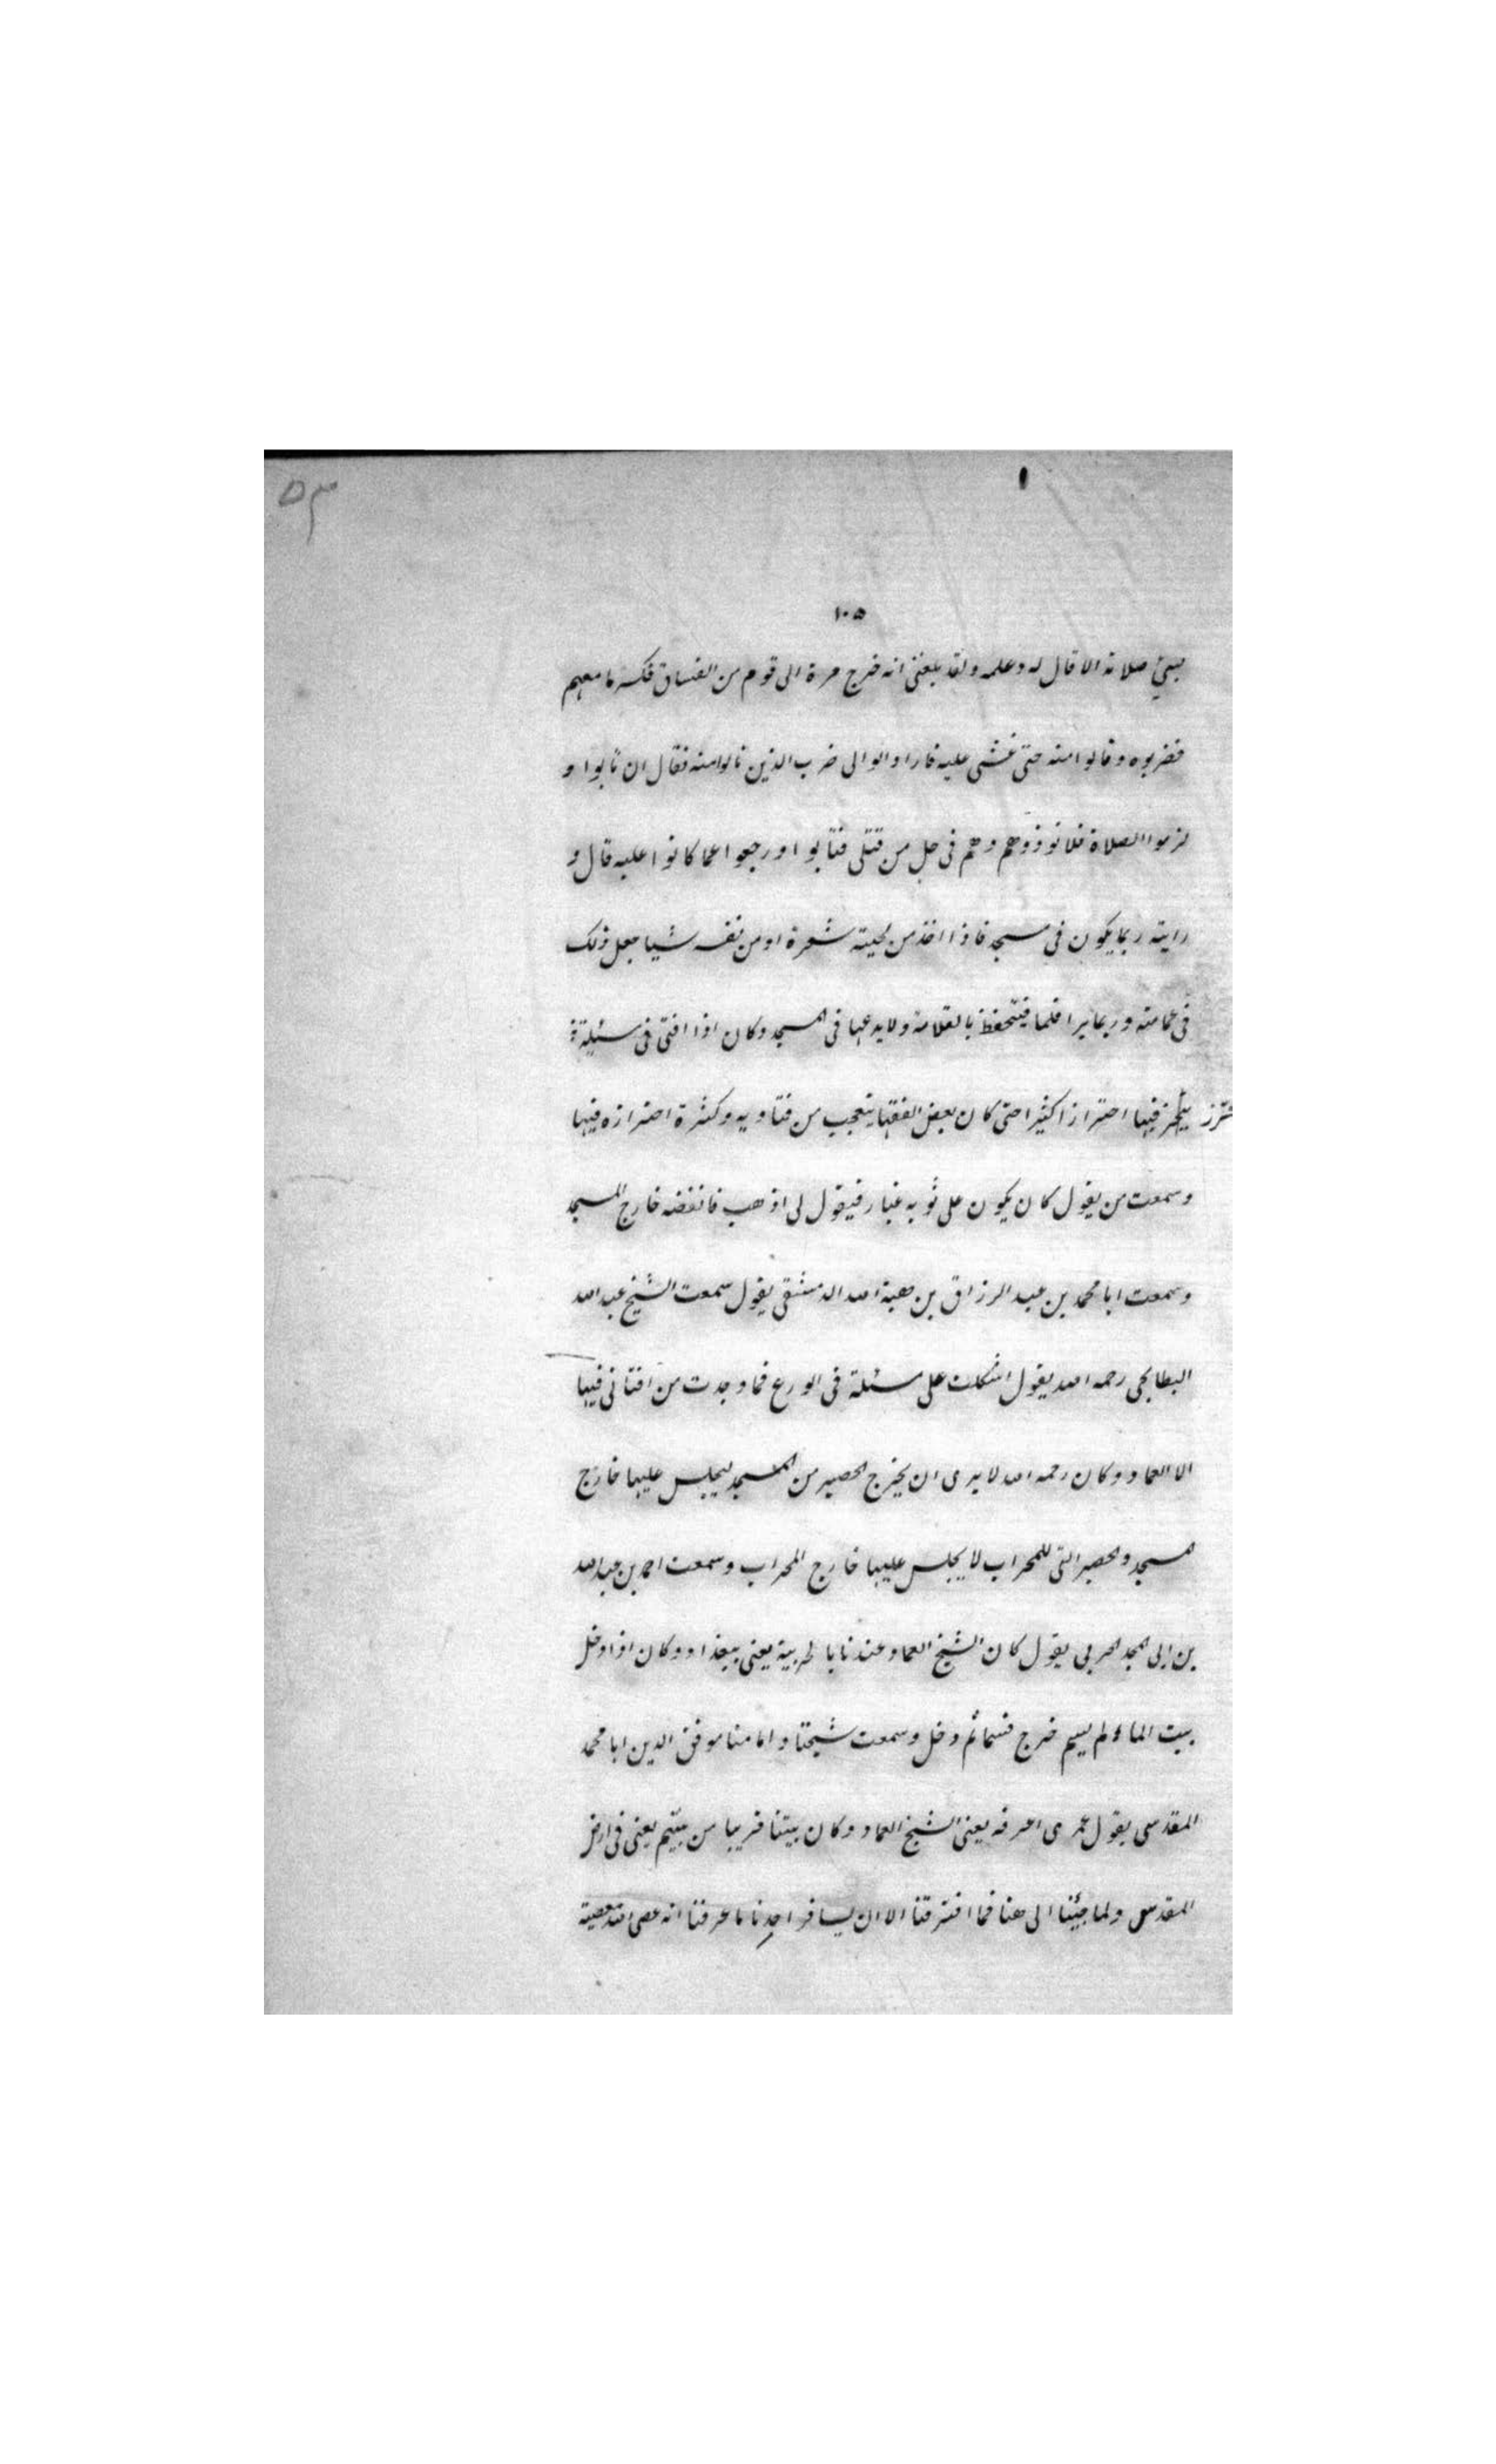 ٥٣
١٠٥
يسيئ صلاته الا قال له وعلمه ولقد بلغنى انه خرج مرة الى قوم من الفساق فكسر ما معهم
فضربوه و قالوا منه حتى غشى عليه فاراد الوالى ضرب الذين نالوا منه فقال ان تابوا و
لزموا الصلاة فلا توذوهم وهم فى حل من قتلى فتابوا ورجعوا عما كانوا عليه قال و
رايته ربما يكون فى مسجد فاذا اخذ من لحيته شعرة او من نفسه شيا جعل ذلك
فى عمامته وربما برا قلما فيتحفظ بالقلامة ولا يدعها فى المسجد وكان اذا افتى فى مسئلة
يتحرز فيها احترازا كثيرا حتى كان بعض الفقها يتعجب من فتاويه وكثرة احترازه فيها
وسمعت من يقول كان يكون على ثوبه غبار فيقول لى اذهب فانفضه خارج المسجد
وسمعت ابا محمد بن عبد الرزاق بن هبة الله الدمشقى يقول سمعت الشيخ عبد الله
البطايحى رحمه الله يقول اشكلت على مسئلة فى الورع فما وجدت من افتانى فيها
الا العماد وكان رحمه الله لا يرى ان يخرج الحصير من المسجد ليجلس عليها خارج
المسجد والحصر التى للمحراب لا يجلس عليها خارج المحراب وسمعت احمد بن عبد الله
بن ابى المجد الحربى يقول كان الشيخ العماد عندنا بالحربية يعنى ببغداد وكان اذا دخل
بيت الماء ولم يسم خرج فسما ثم دخل وسمعت شيخنا وامامنا موفق الدين ابا محمد
المقدسى يقول عمرى اعرفه يعنى الشيخ العماد وكان بيتنا قريبا من بيتهم يعنى فى ارض
المقدس ولما جئنا الى هنا فما افترقنا الا ان يسافر احدنا ما عرفنا انه عصى الله معصية